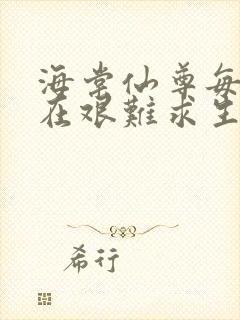 海棠仙尊每
在艰難求生
希行